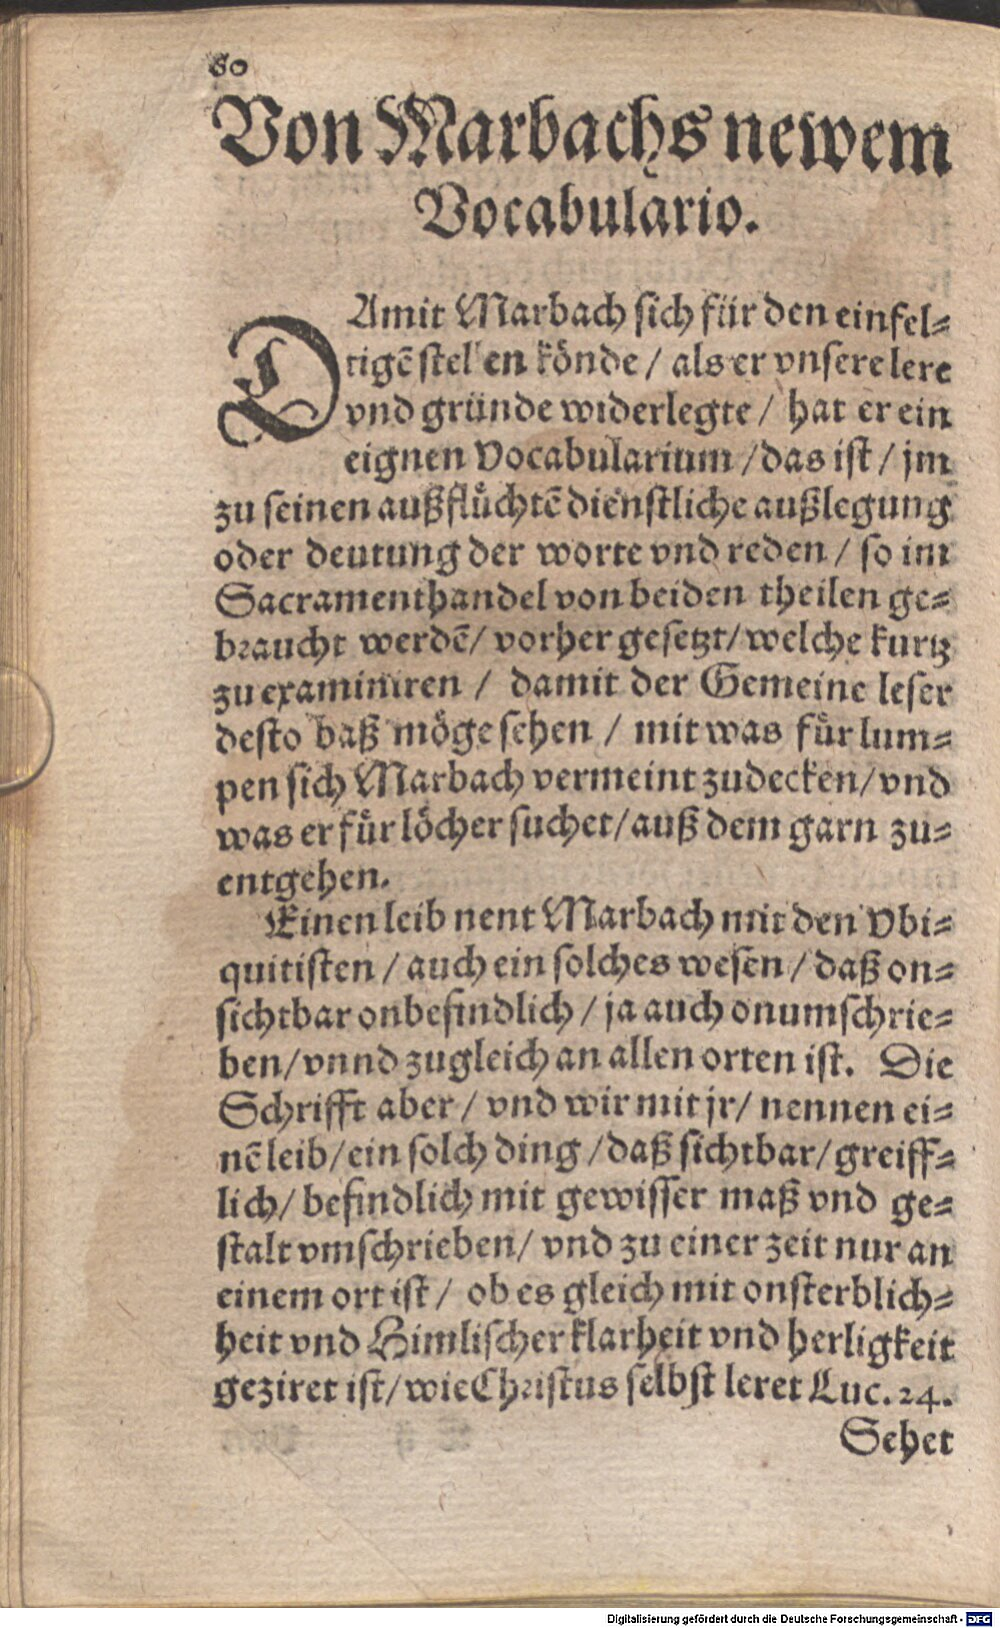 60
Von Marbachs newem
Vocabulario.
DAmit Marbach sich für den einfel⸗
tigẽ stellen könde / als er vnsere lere
vnd gründe widerlegte / hat er ein
eignen Vocabularium / das ist / jm
zu seinen außflüchtẽ dienstliche außlegung
oder deutung der worte vnd reden / so im
Sacramenthandel von beiden theilen ge⸗
braucht werdẽ / vorher gesetzt / welche kurtz
zu examiniren / damit der Gemeine leser
desto baß möge sehen / mit was für lum⸗
pen sich Marbach vermeint zudecken / vnd
was er für löcher suchet / auß dem garn zu⸗
entgehen.
Einen leib nent Marbach mit den Vbi⸗
quitisten / auch ein solches wesen / daß on⸗
sichtbar onbefindlich / ja auch onumschrie⸗
ben / vnnd zugleich an allen orten ist. Die
Schrifft aber / vnd wir mit jr / nennen ei⸗
nẽ leib / ein solch ding / daß sichtbar / greiff⸗
lich / befindlich mit gewisser maß vnd ge⸗
stalt vmschrieben / vnd zu einer zeit nur an
einem ort ist / ob es gleich mit onsterblich⸗
heit vnd Himlischer klarheit vnd herligkeit
geziret ist / wie Christus selbst leret Luc. 24.
Sehet
Digitalisierung gefördert durch die Deutsche Forschungsgemeinschaft - DFG